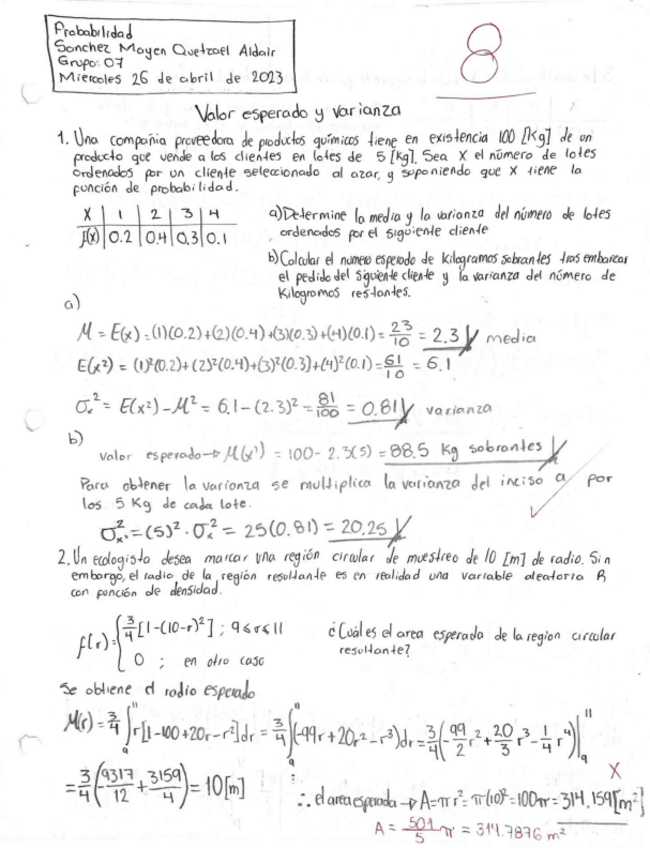 Probabilidad
Sanchez Moyen Quetzael Aldair
Grupo: 07
Miercoles 26 de abril de 2023
8
Valor esperado y varianza
1. Una compañia proveedora de productos químicos tiene en existencia 100 [Kg] de un
producto que vende a los clientes en lotes de 5 [Kg]. Sea X el número de lotes
ordenados por un cliente seleccionado al azar, y suponiendo que X tiene la
función de probabilidad.
X | 1 | 2 | 3 | 4
f(x) | 0.2 | 0.4 | 0.3 | 0.1
a) Determine la media y la varianza del número de lotes
ordenados por el siguiente cliente
b) Calcular el numero esperado de Kilogramos sobrantes tras embarcar
el pedido del siguiente cliente y la varianza del número de
Kilogramos restantes.
a)
M = E(x) = (1)(0.2)+(2)(0.4)+(3)(0.3)+(4)(0.1) = 23/10 = 2.3 media
E(x²) = (1)²(0.2)+(2)²(0.4)+(3)²(0.3)+(4)²(0.1) = 61/10 = 6.1
σx² = E(x²) - M² = 6.1 - (2.3)² = 81/100 = 0.81 varianza
b)
valor esperado → M(x') = 100 - 2.3(5) = 88.5 Kg sobrantes
Para obtener la varianza se multiplica la varianza del inciso a por
los 5 Kg de cada lote.
σ²x' = (5)² · σx² = 25(0.81) = 20.25
2. Un ecologista desea marcar una región circular de muestreo de 10 [m] de radio. Sin
embargo, el radio de la región resultante es en realidad una variable aleatoria R
con función de densidad.
f(r) = { 3/4 [1-(10-r)²] ; 9≤r≤11
0 ; en otro caso
¿Cuál es el area esperada de la region circular
resultante?
Se obtiene el radio esperado
M(r) = 3/4 ∫₉¹¹ r[1-100+20r-r²]dr = 3/4 ∫₉¹¹ (-99r+20r²-r³)dr = 3/4 (-99/2 r² + 20/3 r³ - 1/4 r⁴)|₉¹¹
= 3/4 (9317/12 + 3159/4) = 10[m]
X
∴ el area esperada → A = πr² = π(10)² = 100π = 314.159[m²]
A = 501/5 π = 314.7876 m²